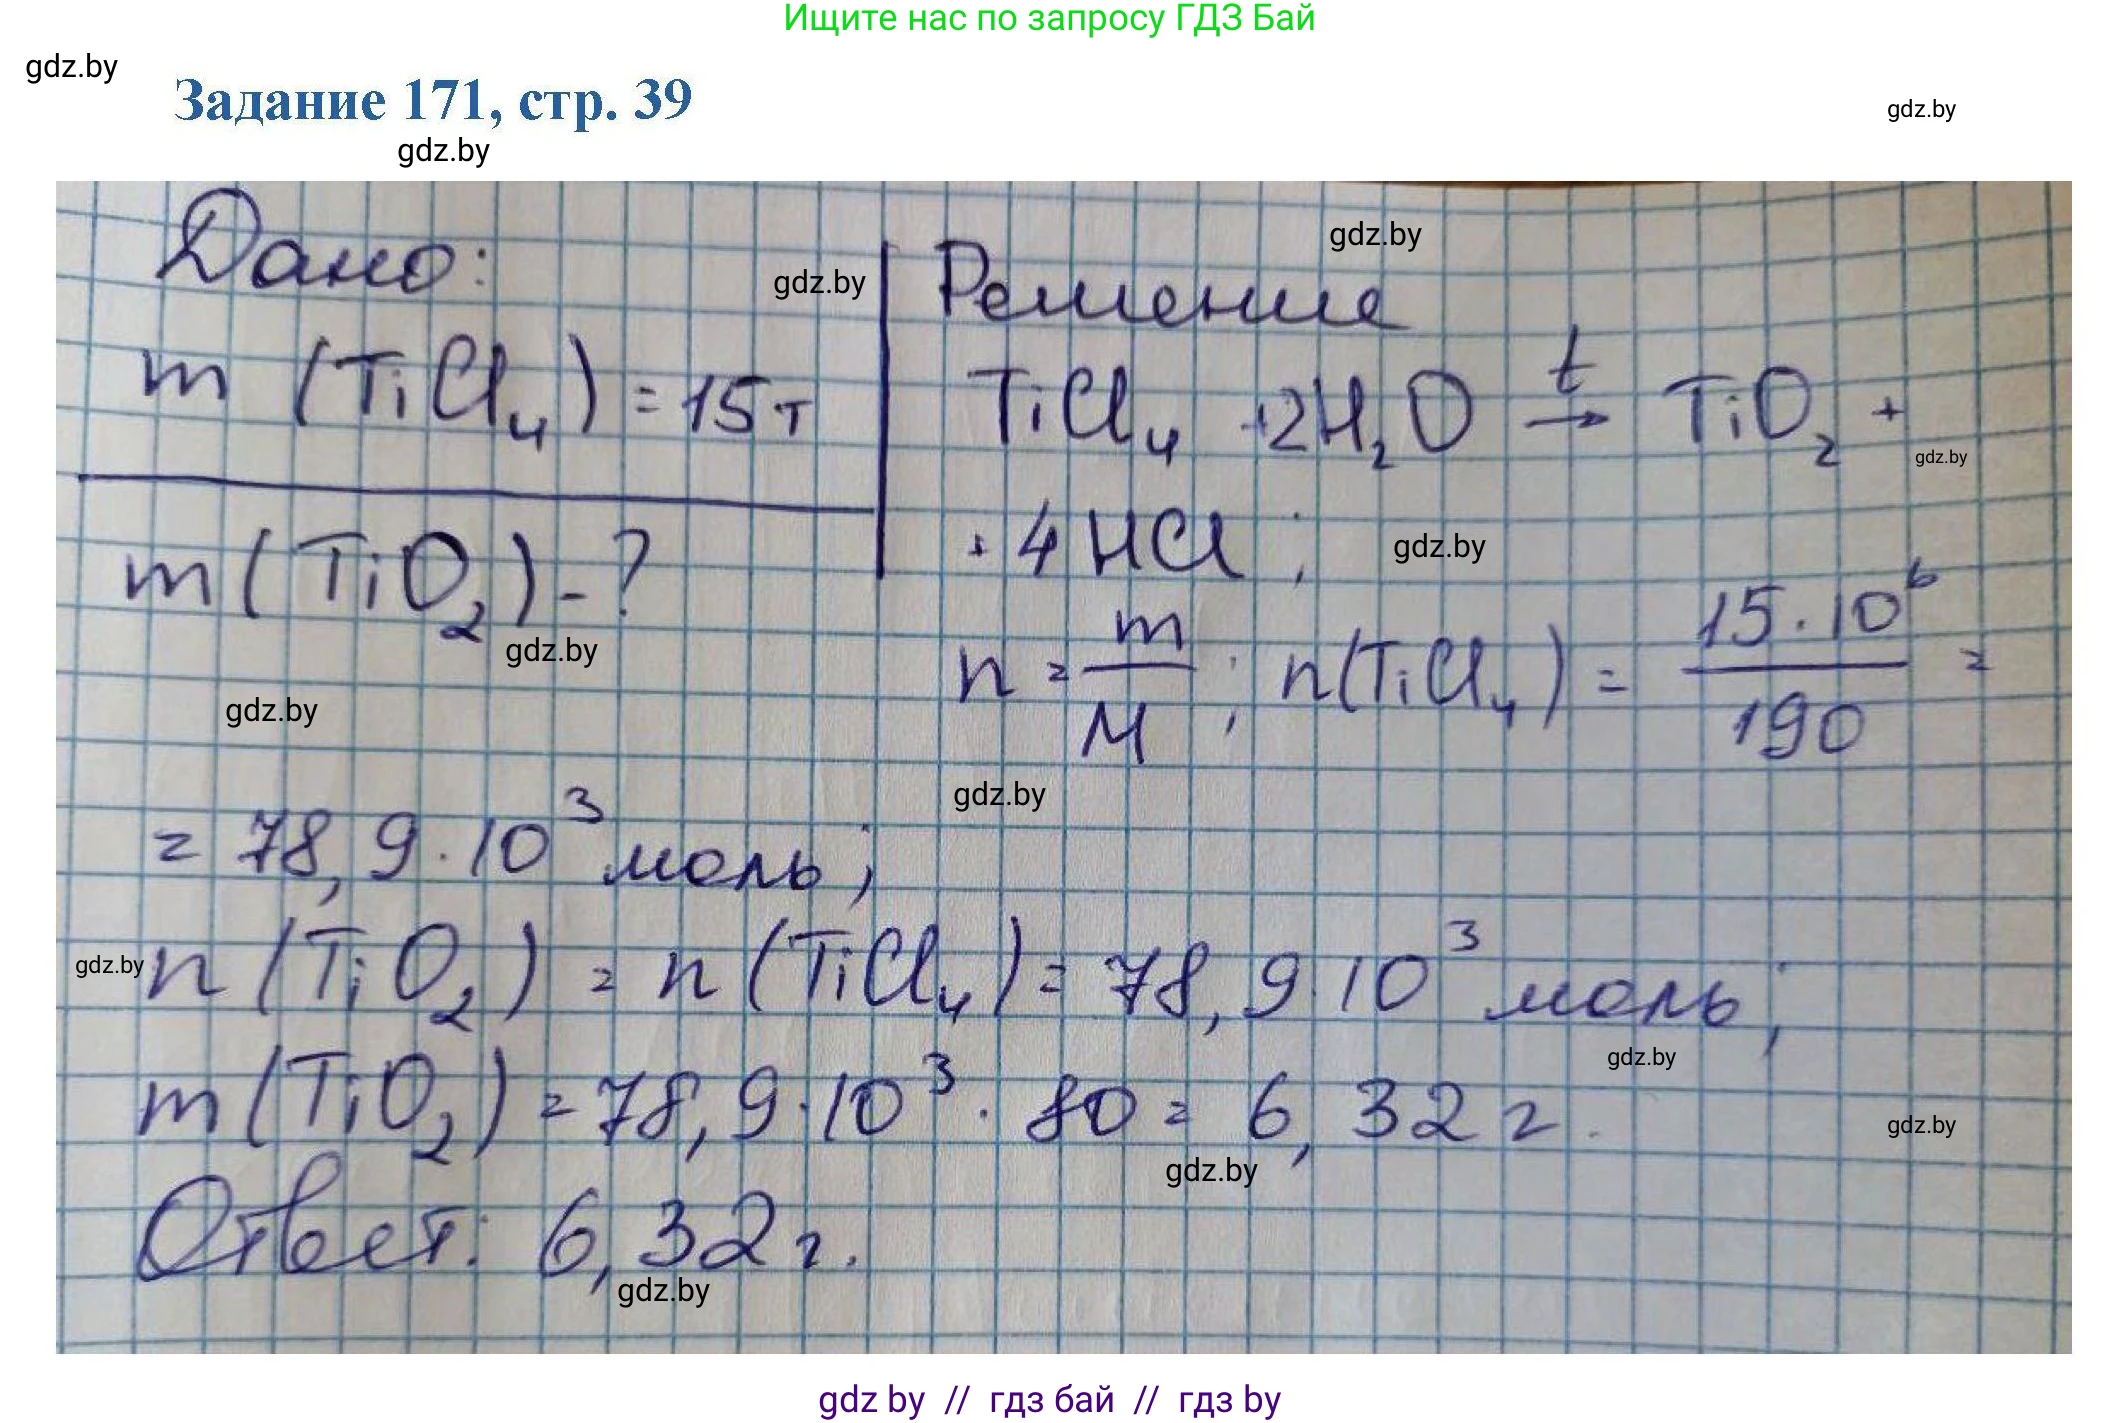 Ищите нас по запросу ГДЗ Бай
gdz.by
Задание 171, стр. 39
gdz.by
gdz.by
Дано:
gdz.by
m (TiCl₄) = 15 т
m (TiO₂) - ?
gdz.by
gdz.by
Решение
gdz.by
TiCl₄ + 2H₂O →ᵗ TiO₂ +
gdz.by
+ 4HCl ;
gdz.by
n = m/M ; n(TiCl₄) = 15 · 10⁶/190 =
gdz.by
= 78,9 · 10³ моль;
gdz.by
n (TiO₂) = n (TiCl₄) = 78,9 · 10³ моль;
gdz.by
m (TiO₂) = 78,9 · 10³ · 80 = 6,32 г.
gdz.by
gdz.by
Ответ: 6,32 г.
gdz.by
gdz by // гдз бай // гдз by